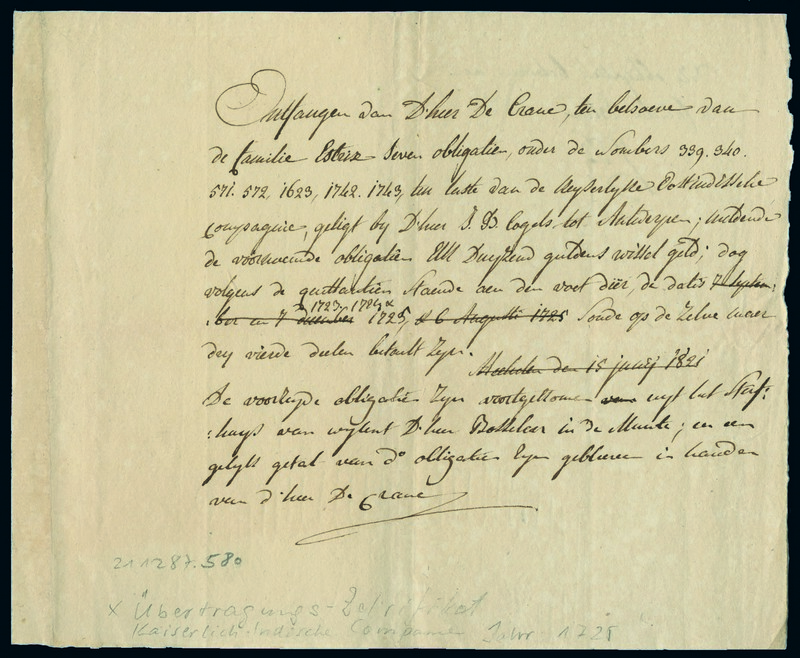 Ontfangen van D'heer De Crane, ten behoeve van
de familie Estrix Seven obligatien, onder de Nombers 339. 340.
571. 572, 1623, 1742. 1743, ten laste van de Keyserlyke Oostindissche
Compagnie, geligt by D'heer J. B. Cogels tot Antwerpen; inhoudende
de voornoemde obligatien Elk Duyzend guldens wissel geld; dog
volgens de quittantien Staende aen den voet dier, de datis 7 Septem:
1723, 1724 &
:ber en 7 december 1725, & 6 Augusti 1725 Soude op de Zelve maer
dry vierde deelen betaelt Zyn.
Mechelen den 15 junij 1821
De voorseyde obligatien Zyn voortgekomen uyt het Sterf:
:huys van wylent D'heer Bosselaer in de Munte; en een
gelyk getal van do obligatien Zyn gebleven in handen
van d'heer De Crane
211287.580
x Übertragungs-Zertifikat
Kaiserlich Indische Companie 1725